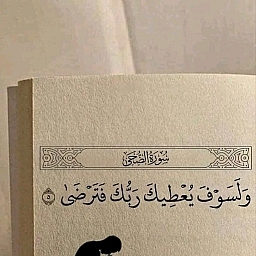 سُورَةُ الضُّحَىٰ
وَلَسَوْفَ يُعْطِيكَ رَبُّكَ فَتَرْضَىٰ ٥